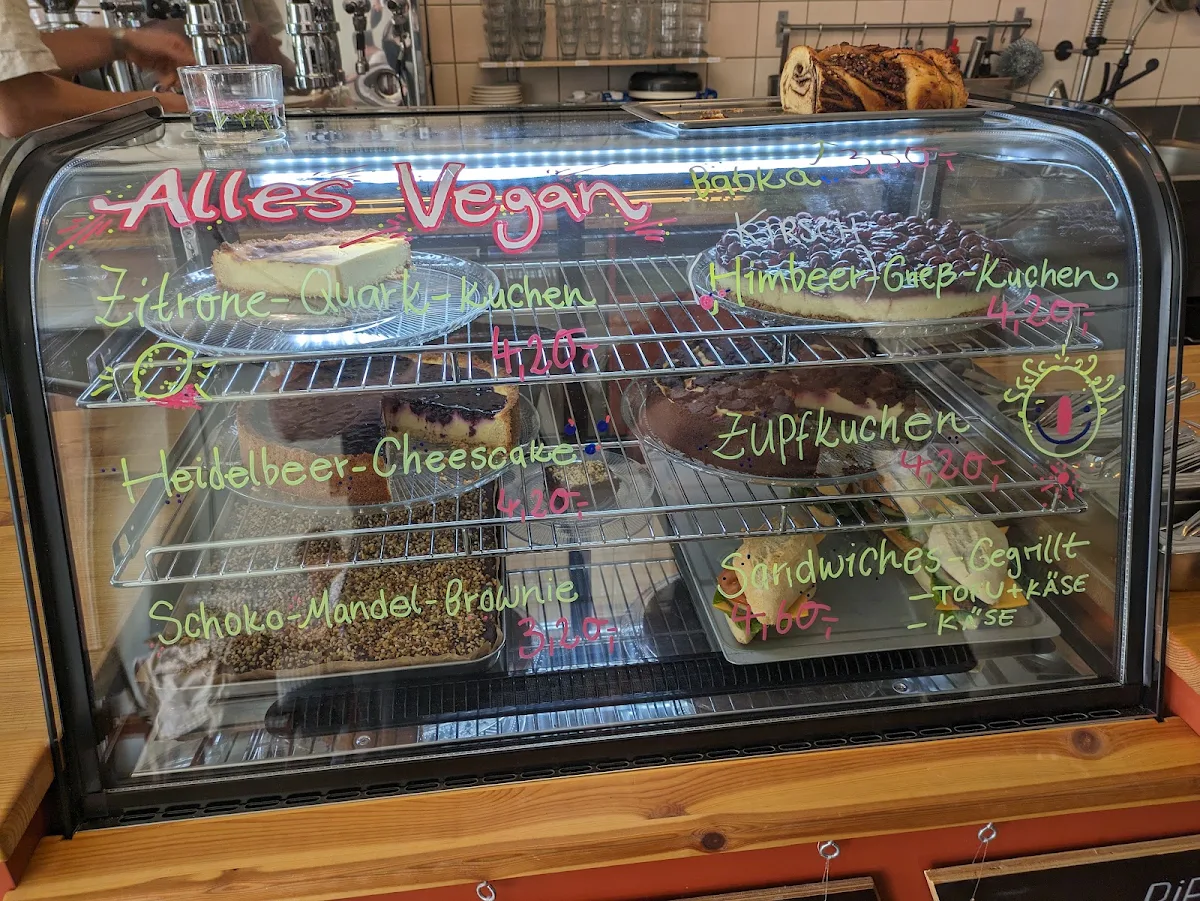 Alles Vegan
Babka 3,50,-
Zitrone-Quark-Kuchen
4,20,-
KIRSCH
Himbeer-Grieß-Kuchen
4,20,-
Heidelbeer-Cheesecake
4,20,-
Zupfkuchen
4,20,-
Schoko-Mandel-Brownie
3,20,-
Sandwiches-Gegrillt
4,60,-
- TOFU + KÄSE
- KÄSE